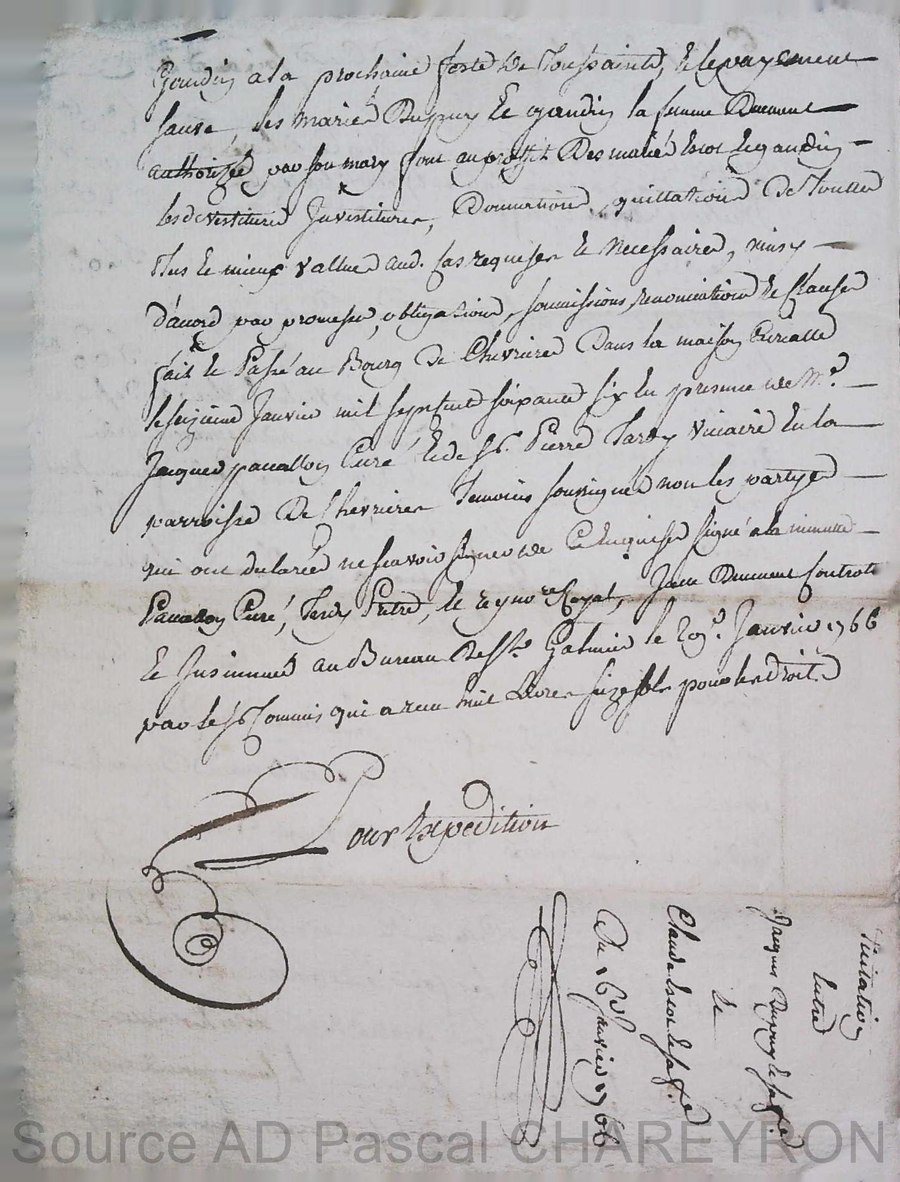 Gaudin a la prochaine feste de Toussainte, & le payement
fauve les mariés Dupuy & gaudin la femme Duement
authorizée par son mary font au proffit Des mariés & gaudin
les devestitures Investitures, Donnation, quittation De Toutte
Plus & mieux vallue aud. Cas requises & Necessaires, ainsy
d'acord par promesse, obligations, soumissions, renonciation & Clauses
fait & Passé au Bourg De Chevrieres Dans la maison Curialle
le seizieme Janvier mil sept cent soixante six en presence de Mre.
Jacques pavallon Curé & de Sr. Pierre Tardy Vicaire en la
parroisse De Chevrieres Temoins soussignés non les partyes
qui ont declarée ne scavoir signer de Ce Enquises signé a la minutte
Pavallon Curé, Tardy Prêtre, & re Royal, Duement Controllé
& Insinué au Bureau De St. Galmier le 29e. Janvier 1766
par le Sr Commis qui a recu huit Livres seize sols pour les droits
Pour Expedition
Quittation
Entre
Jacques Dupuy & sa fe.
&
Claude & sa fe
Du 16e Janvier 1766
Source AD Pascal CHAREYRON